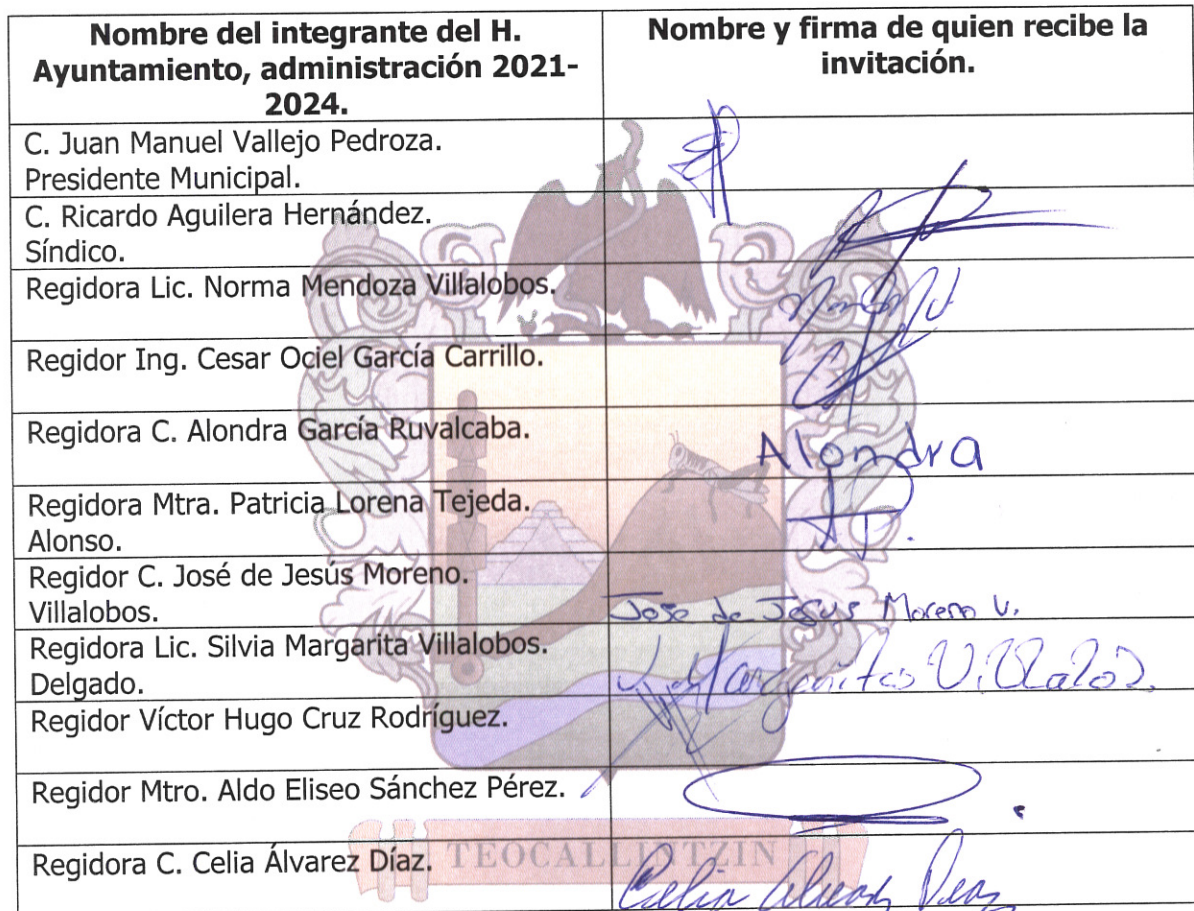 Nombre del integrante del H.
Ayuntamiento, administración 2021-
2024.
Nombre y firma de quien recibe la
invitación.
C. Juan Manuel Vallejo Pedroza.
Presidente Municipal.
C. Ricardo Aguilera Hernández.
Síndico.
Regidora Lic. Norma Mendoza Villalobos.
Regidor Ing. Cesar Ociel García Carrillo.
Regidora C. Alondra García Ruvalcaba.
Alondra
Regidora Mtra. Patricia Lorena Tejeda.
Alonso.
Regidor C. José de Jesús Moreno.
Villalobos.
Jose de Jesus Moreno V.
Regidora Lic. Silvia Margarita Villalobos.
Delgado.
Regidor Víctor Hugo Cruz Rodríguez.
Regidor Mtro. Aldo Eliseo Sánchez Pérez.
Regidora C. Celia Álvarez Díaz.
TEOCALLI
TZIN
Celia